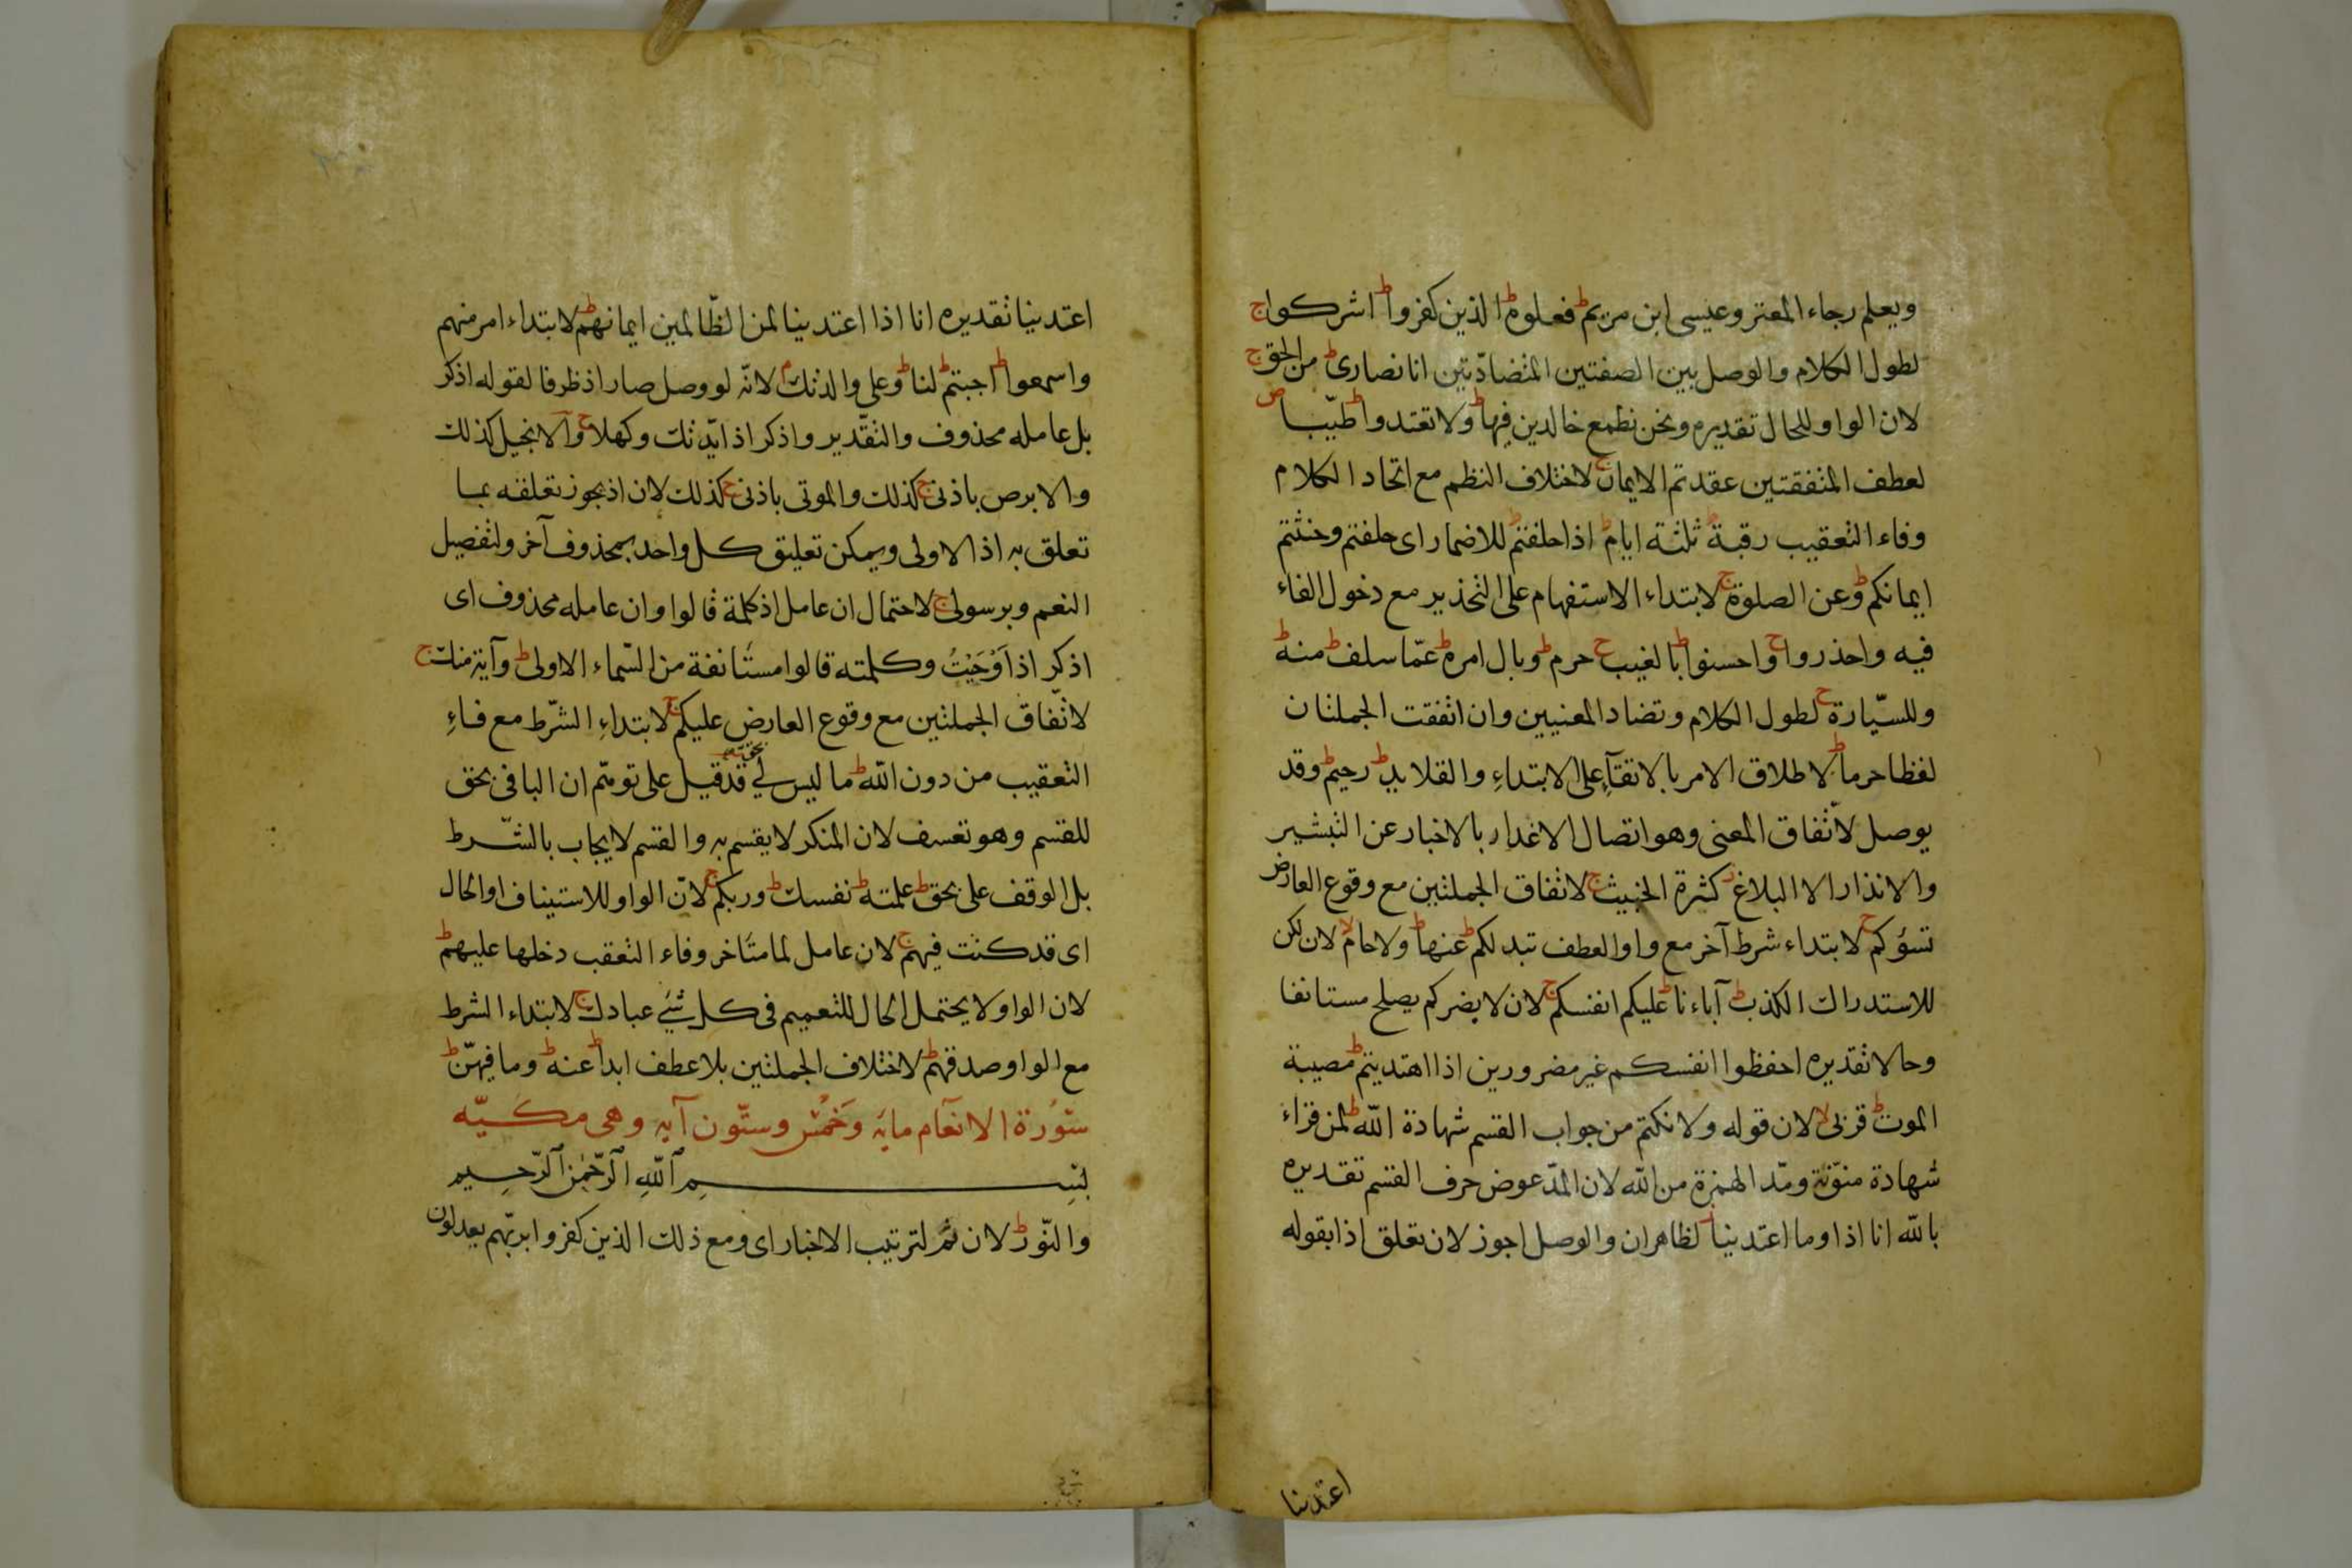 ويعلم رجاء المعتر وعيسى ابن مريم ط فعلوه ط الذين كفروا ط اشركوا ج
لطول الكلام والوصل بين الصفتين المتضادّتين انا نصارى ط من الحق ج
لان الواو للحال تقديره ونحن نطمع خالدين فيها ط ولا تعتدوا ط طيّبا ص
لعطف المتفقتين عقدتم الايمان ج لاختلاف النظم مع اتحاد الكلام
وفاء التعقيب رقبة ط ثلثة ايام ط اذا حلفتم ط للاضمار اى حلفتم وحنثتم
ايمانكم ط وعن الصلوة ج لابتداء الاستفهام على التحذير مع دخول الفاء
فيه واحذروا ج واحسنوا ط بالغيب ح حرم ط وبال امره ط عمّا سلف ط منه ط
وللسيّارة ح لطول الكلام وتضاد المعنيين وان اتفقت الجملتان
لفظا حرما ط لاطلاق الامر بالاتقاء على الابتداء والقلايد ط رحيم ط وقد
يوصل لاتّفاق المعنى وهو اتصال الاغدار بالاخبار عن التبشير
والانذار الا البلاغ ط كثرة الخبيث ج لاتفاق الجملتين مع وقوع العارض
تسؤكم ح لابتداء شرط آخر مع واو العطف تبد لكم ط عنها ط ولا حام لا لان لكن
للاستدراك الكذب ط آباءنا ط عليكم انفسكم ج لان لا يضركم يصلح مستانفا
وحالا تقديره احفظوا انفسكم غير مضرورين اذا اهتديتم ط مصيبة
الموت ط قربى لا لان قوله ولا نكتم من جواب القسم شهادة الله ط لمن قراء
شهادة منوّنة ومدّ الهمزة من الله لان المدّ عوض حرف القسم تقديره
بالله انا اذا وما اعتدينا لظاهر ان والوصل اجوز لان تعلق اذا بقوله
اعتدينا
اعتدينا تقديره انا اذا اعتدينا لمن الظّالمين ايمانهم ط لابتداء امر منهم
واسمعوا ط اجبتم ط لنا ط وعلى والدتك م لانّه لو وصل صار اذ ظرفا لقوله اذكر
بل عامله محذوف والتقّدير واذكر اذ ايّدتك وكهلا ح والانجيل كذلك
والابرص باذنى ج كذلك والموتى باذنى ج كذلك لان اذ يجوز تعلقه بما
تعلق به اذ الاولى ويمكن تعليق كل واحد بمحذوف آخر ولتفصيل
النعم وبرسولى ج لاحتمال ان عامل اذ كلمة قالوا وان عامله محذوف اى
اذكر اذ اَوْحَيْتُ وكلمته قالوا مستانفة من السّماء الاولى ط وآية منك ج
لاتّفاق الجملتين مع وقوع العارض عليكم ج لابتداءِ الشّرط مع فاءِ
التعقيب من دون الله ط ما ليس لى بحق قد قيل على توهّم ان الباء فى بحق
للقسم وهو تعسف لان المنكر لا يقسم به والقسم لا يجاب بالشّرط
بل الوقف على بحق ط علمته ط نفسك ط وربكم ج لانّ الواو للاستيناف او الحال
اى قد كنت فيهم ج لان عامل لما متاخر وفاء التعقب دخلها عليهم ط
لان الواو لا يحتمل الحال للتعميم فى كل شئ عبادك ج لابتداء الشرط
مع الواو صدقهم ط لاختلاف الجملتين بلا عطف ابدا ط عنه ط وما فيهنّ ط
سُورة الانعام مايه وَخمْسٌ وستّون آيه وهى مكيّه
بِسْمِ اللهِ الرّحْمٰنِ الرّحِيمِ
والنّور ط لان ثم لترتيب الاخبار اى ومع ذلك الذين كفروا بربّهم يعدلون